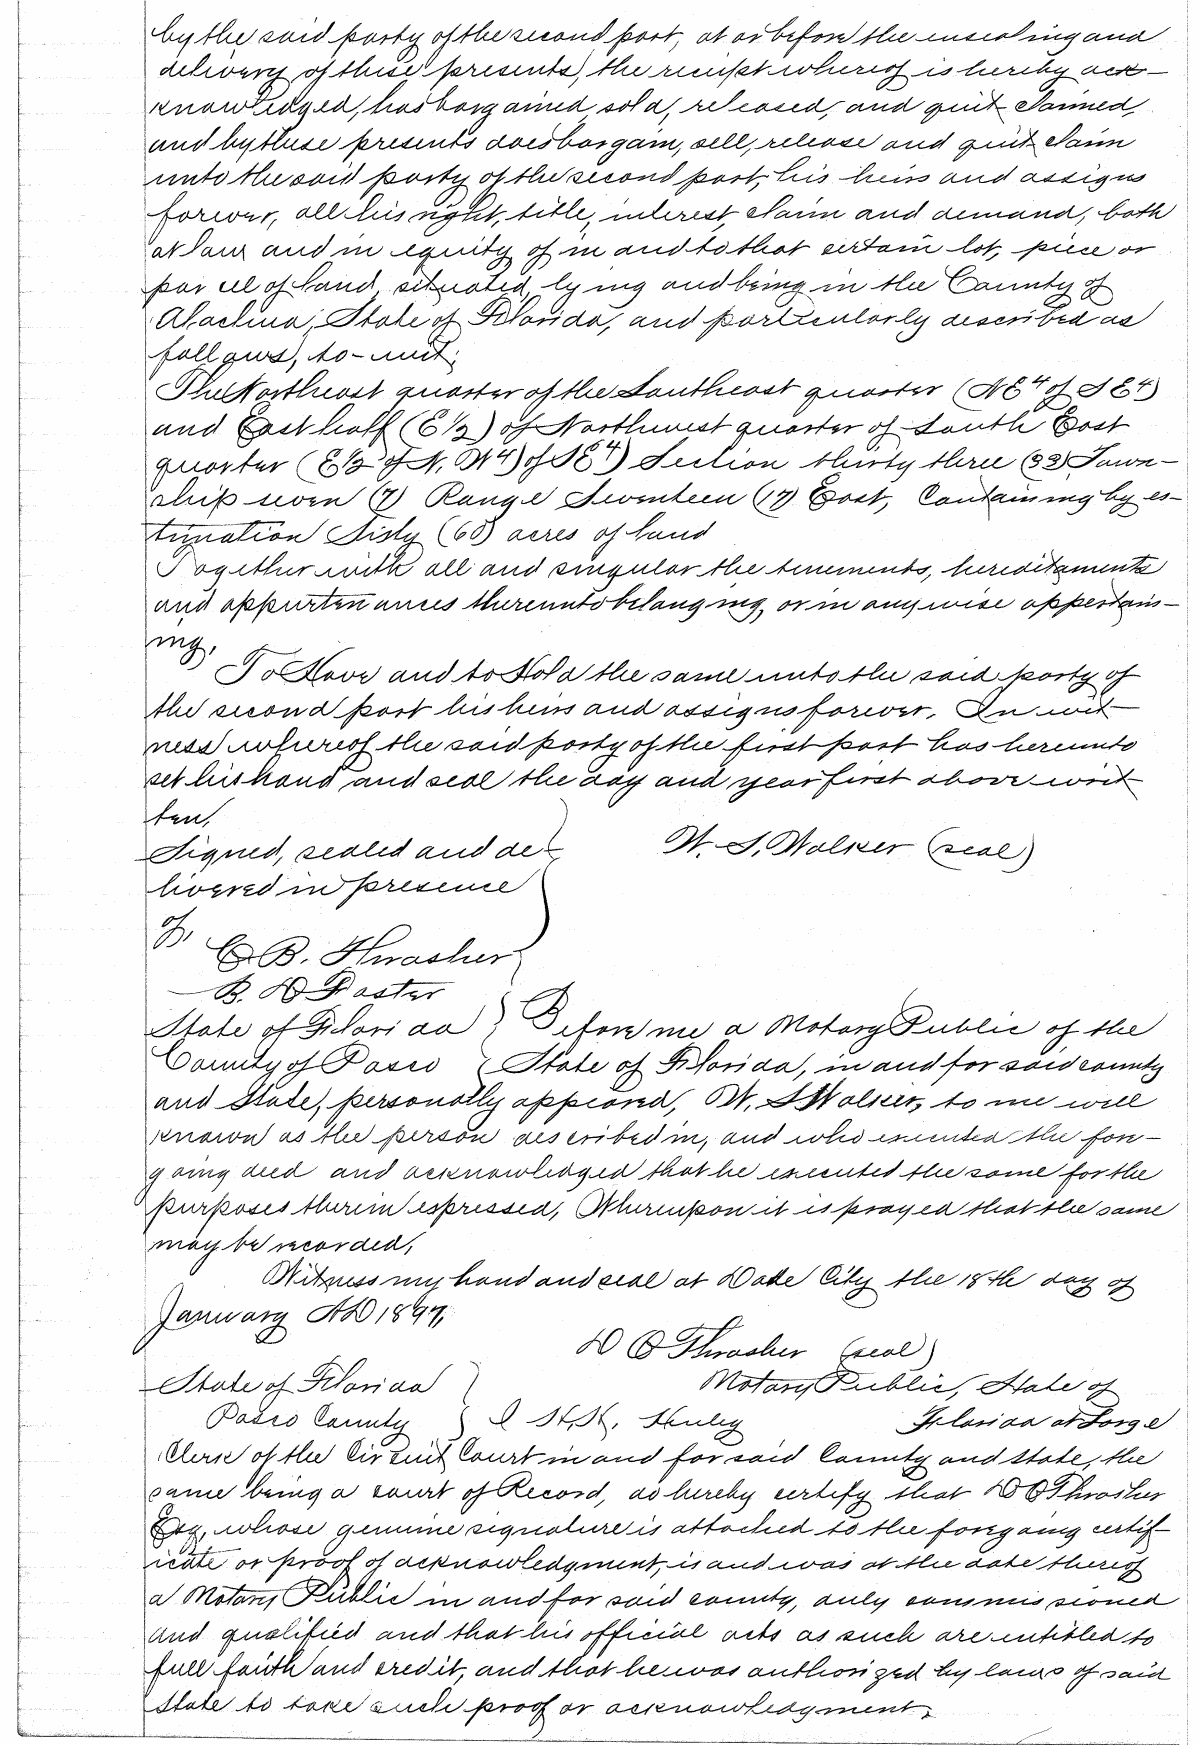 by the said party of the second part, at or before the ensealing and
delivery of these presents, the receipt whereof is hereby ack-
knowledged, has bargained sold, released, and quit claimed,
and by these presents does bargain, sell, release and quit claim
unto the said party of the second part, his heirs and assigns
forever, all his right, title, interest, claim and demand, both
at law and in equity of in and to that certain lot, piece or
parcel of land, situated, lying and being in the County of
Alachua, State of Florida, and particularly described as
follows, to-wit;
The Northeast quarter of the Southeast quarter (NE4 of SE4)
and East half (E½) of Northwest quarter of South East
quarter (E½ of N.W4) of SE4) Section thirty three (33) Town-
ship seven (7) Range Seventeen (17) East, Containing by es-
timation Sixty (60) acres of land
Together with all and singular the tenements, hereditaments
and appurtenances thereunto belonging, or in anywise appertain-
ing,
To Have and to Hold the same unto the said party of
the second part his heirs and assigns forever. In wit-
ness whereof the said party of the first part has hereunto
set his hand and seal the day and year first above writ
ten,
Signed, sealed and de- W. S. Walker (seal)
livered in presence
of,
E B. Thrasher
B. D
State of Florida } Before me a Notary Public of the
County of Pasco { State of Florida, in and for said county
and State, personally appeared, W. S Walker, to me well
known as the person described in, and who executed the fore-
going deed and acknowledged that he executed the same for the
purposes therein expressed, Whereupon it is prayed that the same
may be recorded,
Witness my hand and seal at Dade City the 18th day of
January AD 1897,
D O Thrasher (seal)
State of Florida } Notary Public, State of
Pasco County } I H.H. Florida at Large
Clerk of the Circuit Court in and for said County and State, the
same being a court of Record, do hereby certify that D O Thrasher
Esq, whose genuine signature is attached to the foregoing certif-
icate or proof of acknowledgment, is and was at the date thereof
a Notary Public in and for said county, duly commissioned
and qualified and that his official acts as such are entitled to
full faith and credit, and that he was authorized by laws of said
State to take such proof or acknowledgment.